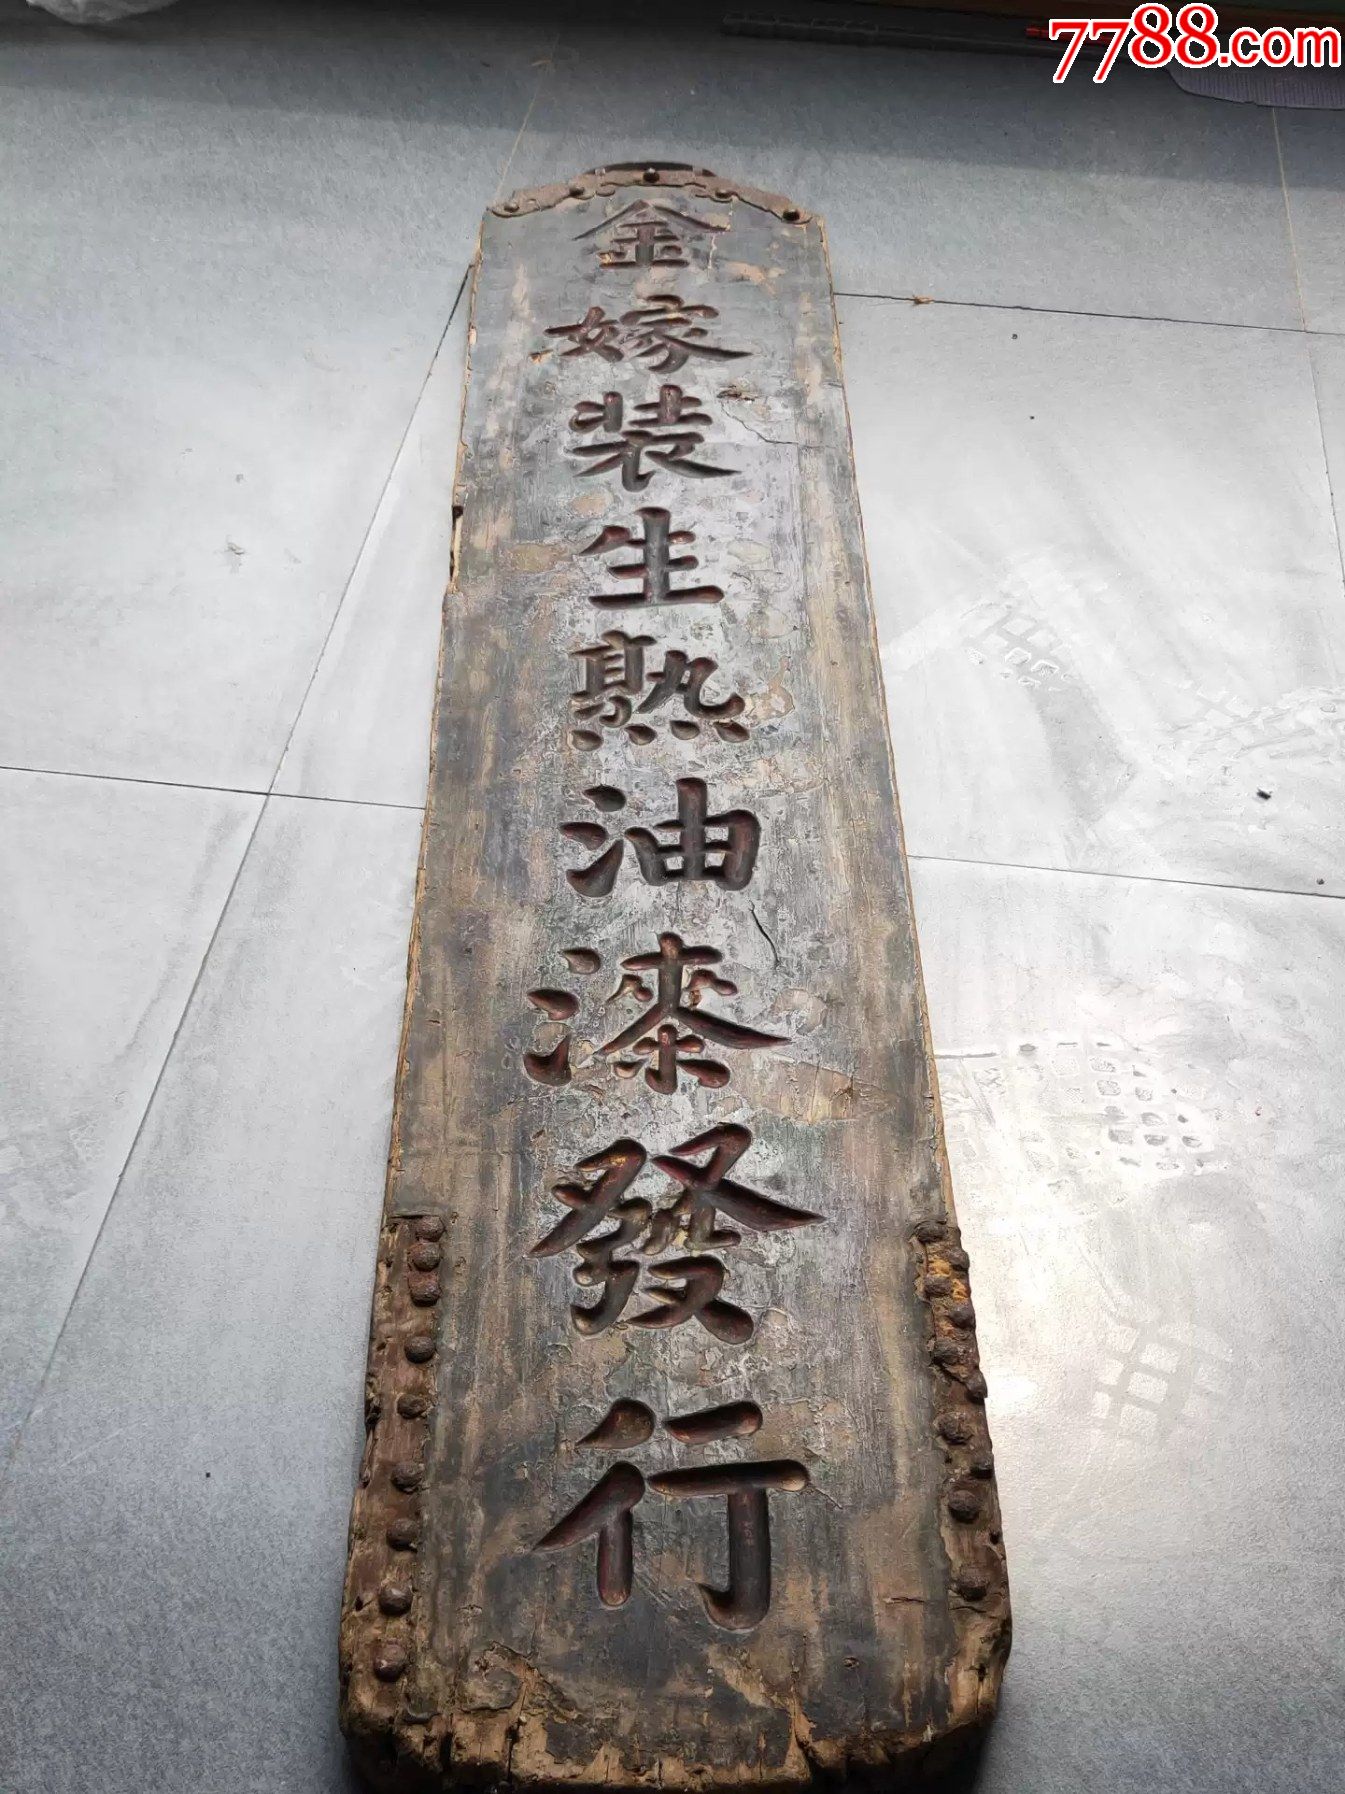 7788.com
金嫁装生熟油漆發行